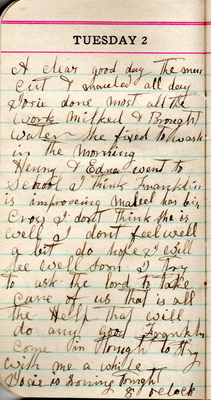 TUESDAY 2
A clear good day the men
cut & hauled all day
Josie done most all the
work Milked & Brought
water She fixed to wash
in the morning
Henny & Edna went to
School I think Franklin
is improveing Mabeel has big
Croy I dont think she is
well I dont feel well
a bit do hope I will
fee well soon I try
to ask the lord to take
care of us that is all
the Help that will
do any good Frankln
come in Tonugh to try
with me a while
Josie is Ironing Tonight
8 oclock